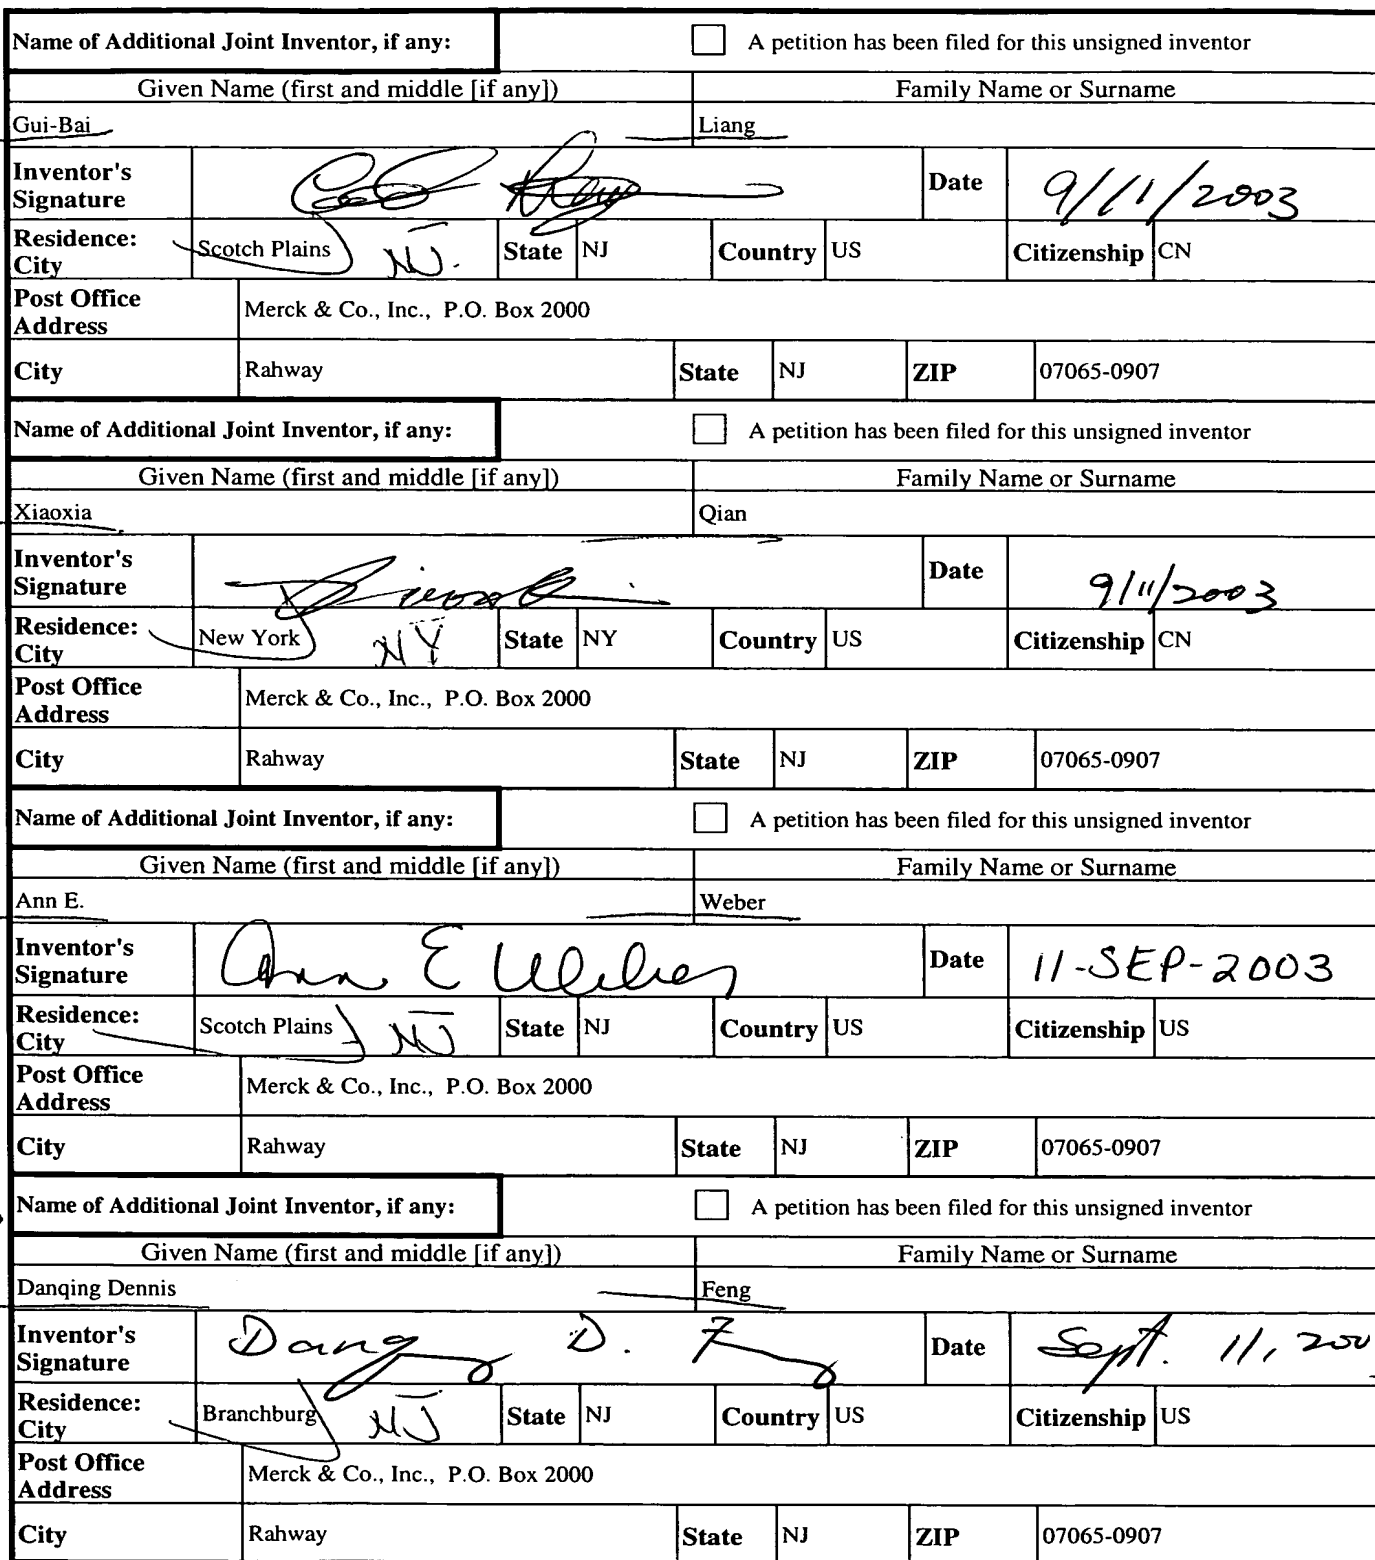 Name of Additional Joint Inventor, if any: A petition has been filed for this unsigned inventor
Given Name (first and middle [if any]) Family Name or Surname
Gui-Bai Liang
Inventor's Signature Date 9/11/2003
Residence: City Scotch Plains NJ. State NJ Country US Citizenship CN
Post Office Address Merck & Co., Inc., P.O. Box 2000
City Rahway State NJ ZIP 07065-0907
Name of Additional Joint Inventor, if any: A petition has been filed for this unsigned inventor
Given Name (first and middle [if any]) Family Name or Surname
Xiaoxia Qian
Inventor's Signature Date 9/11/2003
Residence: City New York NY State NY Country US Citizenship CN
Post Office Address Merck & Co., Inc., P.O. Box 2000
City Rahway State NJ ZIP 07065-0907
Name of Additional Joint Inventor, if any: A petition has been filed for this unsigned inventor
Given Name (first and middle [if any]) Family Name or Surname
Ann E. Weber
Inventor's Signature Ann E Weber Date 11-SEP-2003
Residence: City Scotch Plains NJ State NJ Country US Citizenship US
Post Office Address Merck & Co., Inc., P.O. Box 2000
City Rahway State NJ ZIP 07065-0907
Name of Additional Joint Inventor, if any: A petition has been filed for this unsigned inventor
Given Name (first and middle [if any]) Family Name or Surname
Danqing Dennis Feng
Inventor's Signature D. Date Sept. 11, 200
Residence: City Branchburg NJ State NJ Country US Citizenship US
Post Office Address Merck & Co., Inc., P.O. Box 2000
City Rahway State NJ ZIP 07065-0907